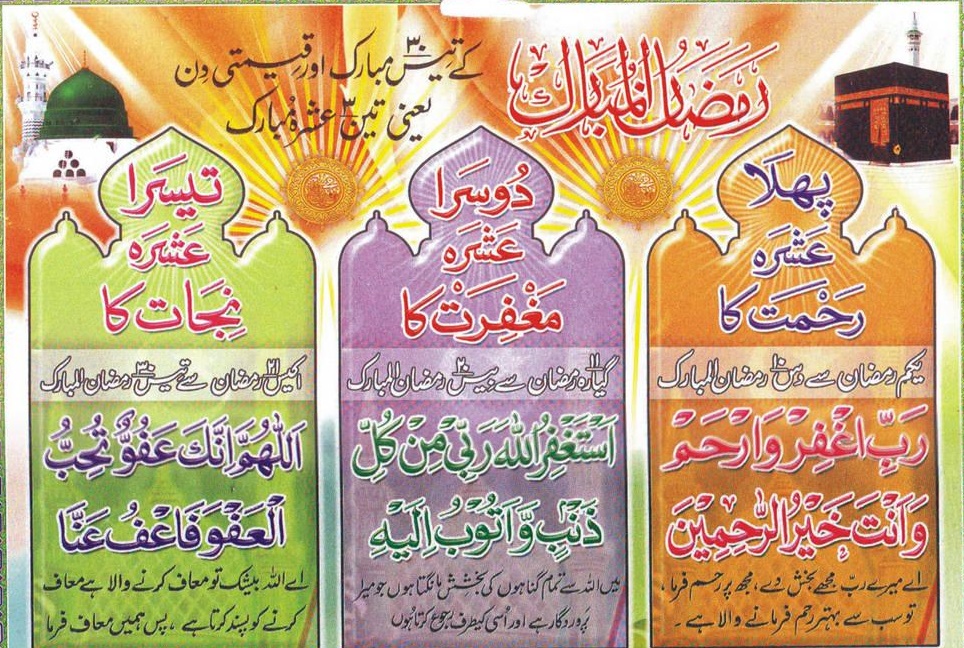 رمضان المبارک
کے تیس۳۰ مبارک اور قیمتی دن
یعنی تین۳ عشرۂ مبارک
پہلا
عشرہ
رَحْمَت کا
یکم رمضان سے دس۱۰ رمضان المبارک
رَبِّ اغْفِرْ وَارْحَمْ
وَاَنْتَ خَيْرُ الرّٰحِمِيْنَ
اے میرے ربّ مجھے بخش دے، مجھ پر رحم فرما،
تو سب سے بہتر رحم فرمانے والا ہے۔
دُوسرا
عَشَرَہ
مَغْفِرَتْ کا
گیارہ۱۱ رمضان سے بیس۲۰ رمضان المبارک
اَسْتَغْفِرُ اللهَ رَبِّیْ مِنْ کُلِّ
ذَنْۢبٍ وَّاَتُوْبُ اِلَيْهِ
میں اللہ سے تمام گناہوں کی بخشش مانگتا ہوں جو میرا
پروردگار ہے اور اُسی کیطرف رجوع کرتا ہُوں
تیسرا
عَشَرَہ
نِجَات کا
اکیس۲۱ رمضان سے تیس۳۰ رمضان المبارک
اَللّٰهُمَّ اِنَّكَ عَفُوٌّ تُحِبُّ
الْعَفْوَ فَاعْفُ عَنَّا
اے اللہ بیشک تو معاف کرنے والا ہے معاف
کرنے کو پسند کرتا ہے، پس ہمیں معاف فرما